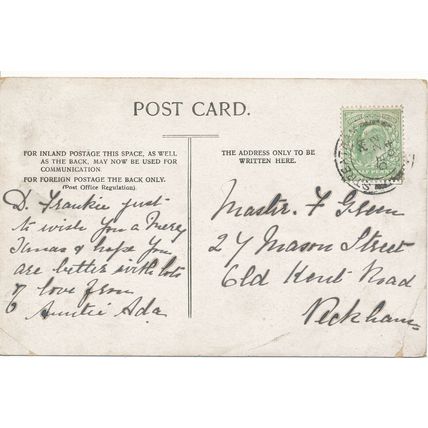 POST CARD.
FOR INLAND POSTAGE THIS SPACE, AS WELL
AS THE BACK, MAY NOW BE USED FOR
COMMUNICATION.
FOR FOREIGN POSTAGE THE BACK ONLY.
(Post Office Regulation).
D. Frankie just
to wish you a Merry
Xmas & hope you
are better with lots
of love from
Auntie Ada
THE ADDRESS ONLY TO BE
WRITTEN HERE.
Master. F Green
27 Mason Street
Old Kent Road
Peckham